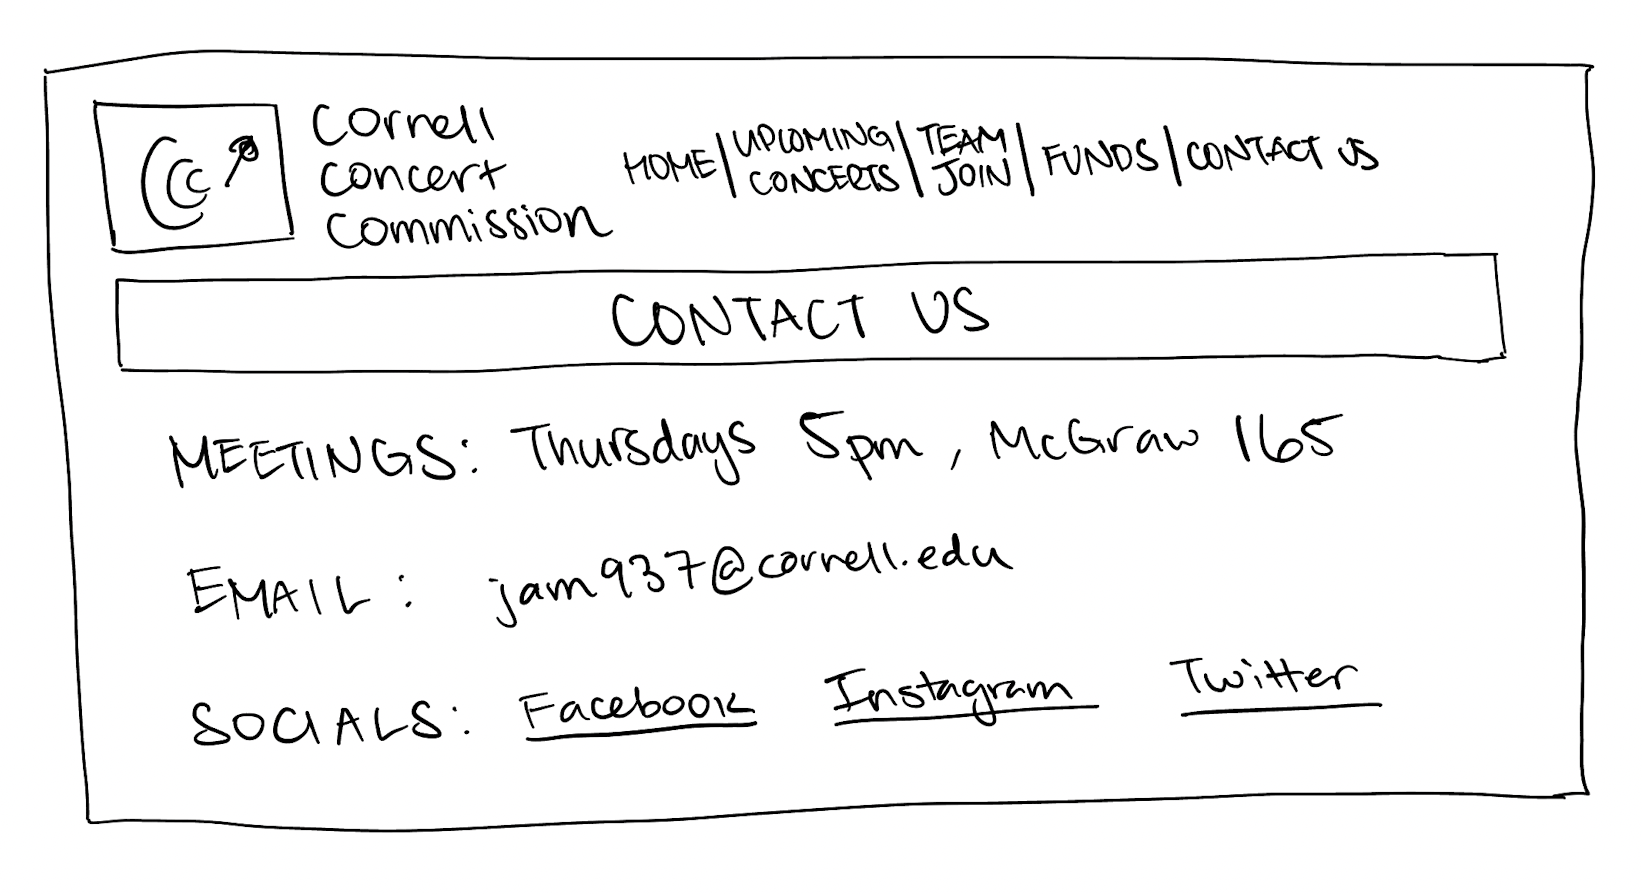 CCC
Cornell
Concert
Commission
HOME | UPCOMING CONCERTS | TEAM JOIN | FUNDS | CONTACT US
CONTACT US
MEETINGS: Thursdays 5pm, McGraw 165
EMAIL: jam937@cornell.edu
SOCIALS: Facebook Instagram Twitter